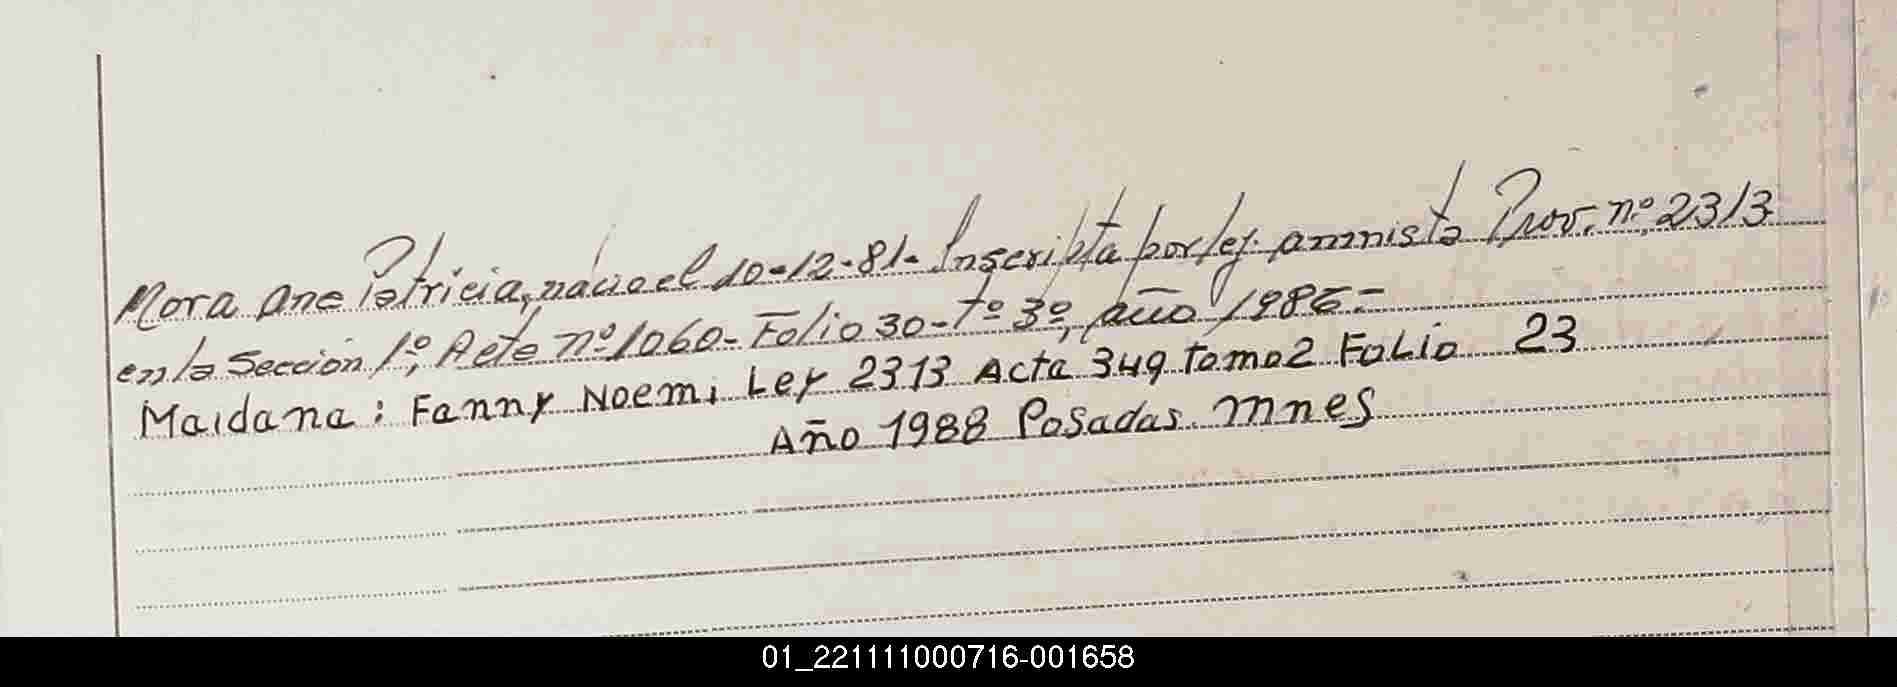 Mora Ana Patricia, nacio el 10-12-81- Inscripta por ley amnista Prov. nº 2313
en la Sección 1º, Acta nº 1060- Folio 30- Tº 3º, año 1986-
Maidana: Fanny Noemi Ley 2313 Acta 349 Tomo 2 Folio 23
Año 1988 Posadas. Mnes
01_221111000716-001658